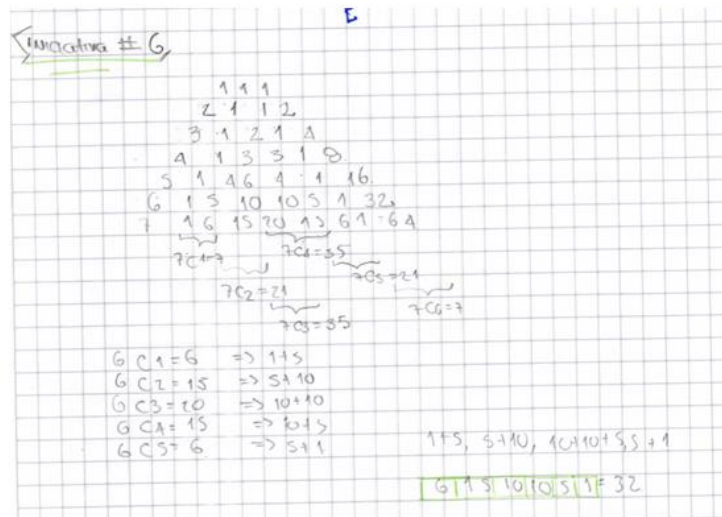 E
# 6
1 1 1
2 1 1 2
3 1 2 1 4
4 1 3 3 1 8
5 1 4 6 4 1 16
6 1 5 10 10 5 1 32
7 1 6 15 20 15 6 1 64
7C1=7 7C4=35
7C5=21
7C2=21 7C6=7
7C3=35
6 C1=6 => 1+5
6 C2=15 => 5+10
6 C3=20 => 10+10
6 C4=15 => 10+5
6 C5=6 => 5+1
1+5, 5+10, 10+10+5,5+1
6 1 5 10 10 5 1 = 32